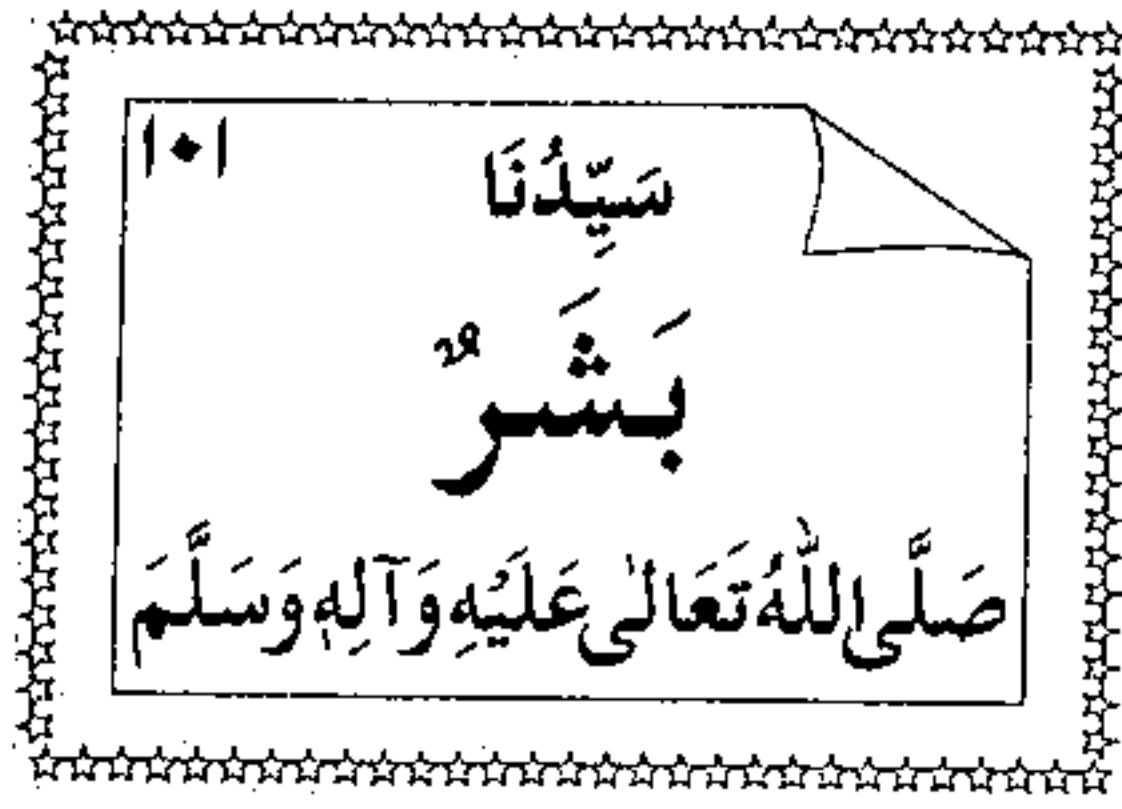 ۱۰۱
سَيِّدُنَا
بَشَرٌ
صَلَّى اللّٰهُ تَعَالٰى عَلَيْهِ وَآلِهٖ وَسَلَّمَ